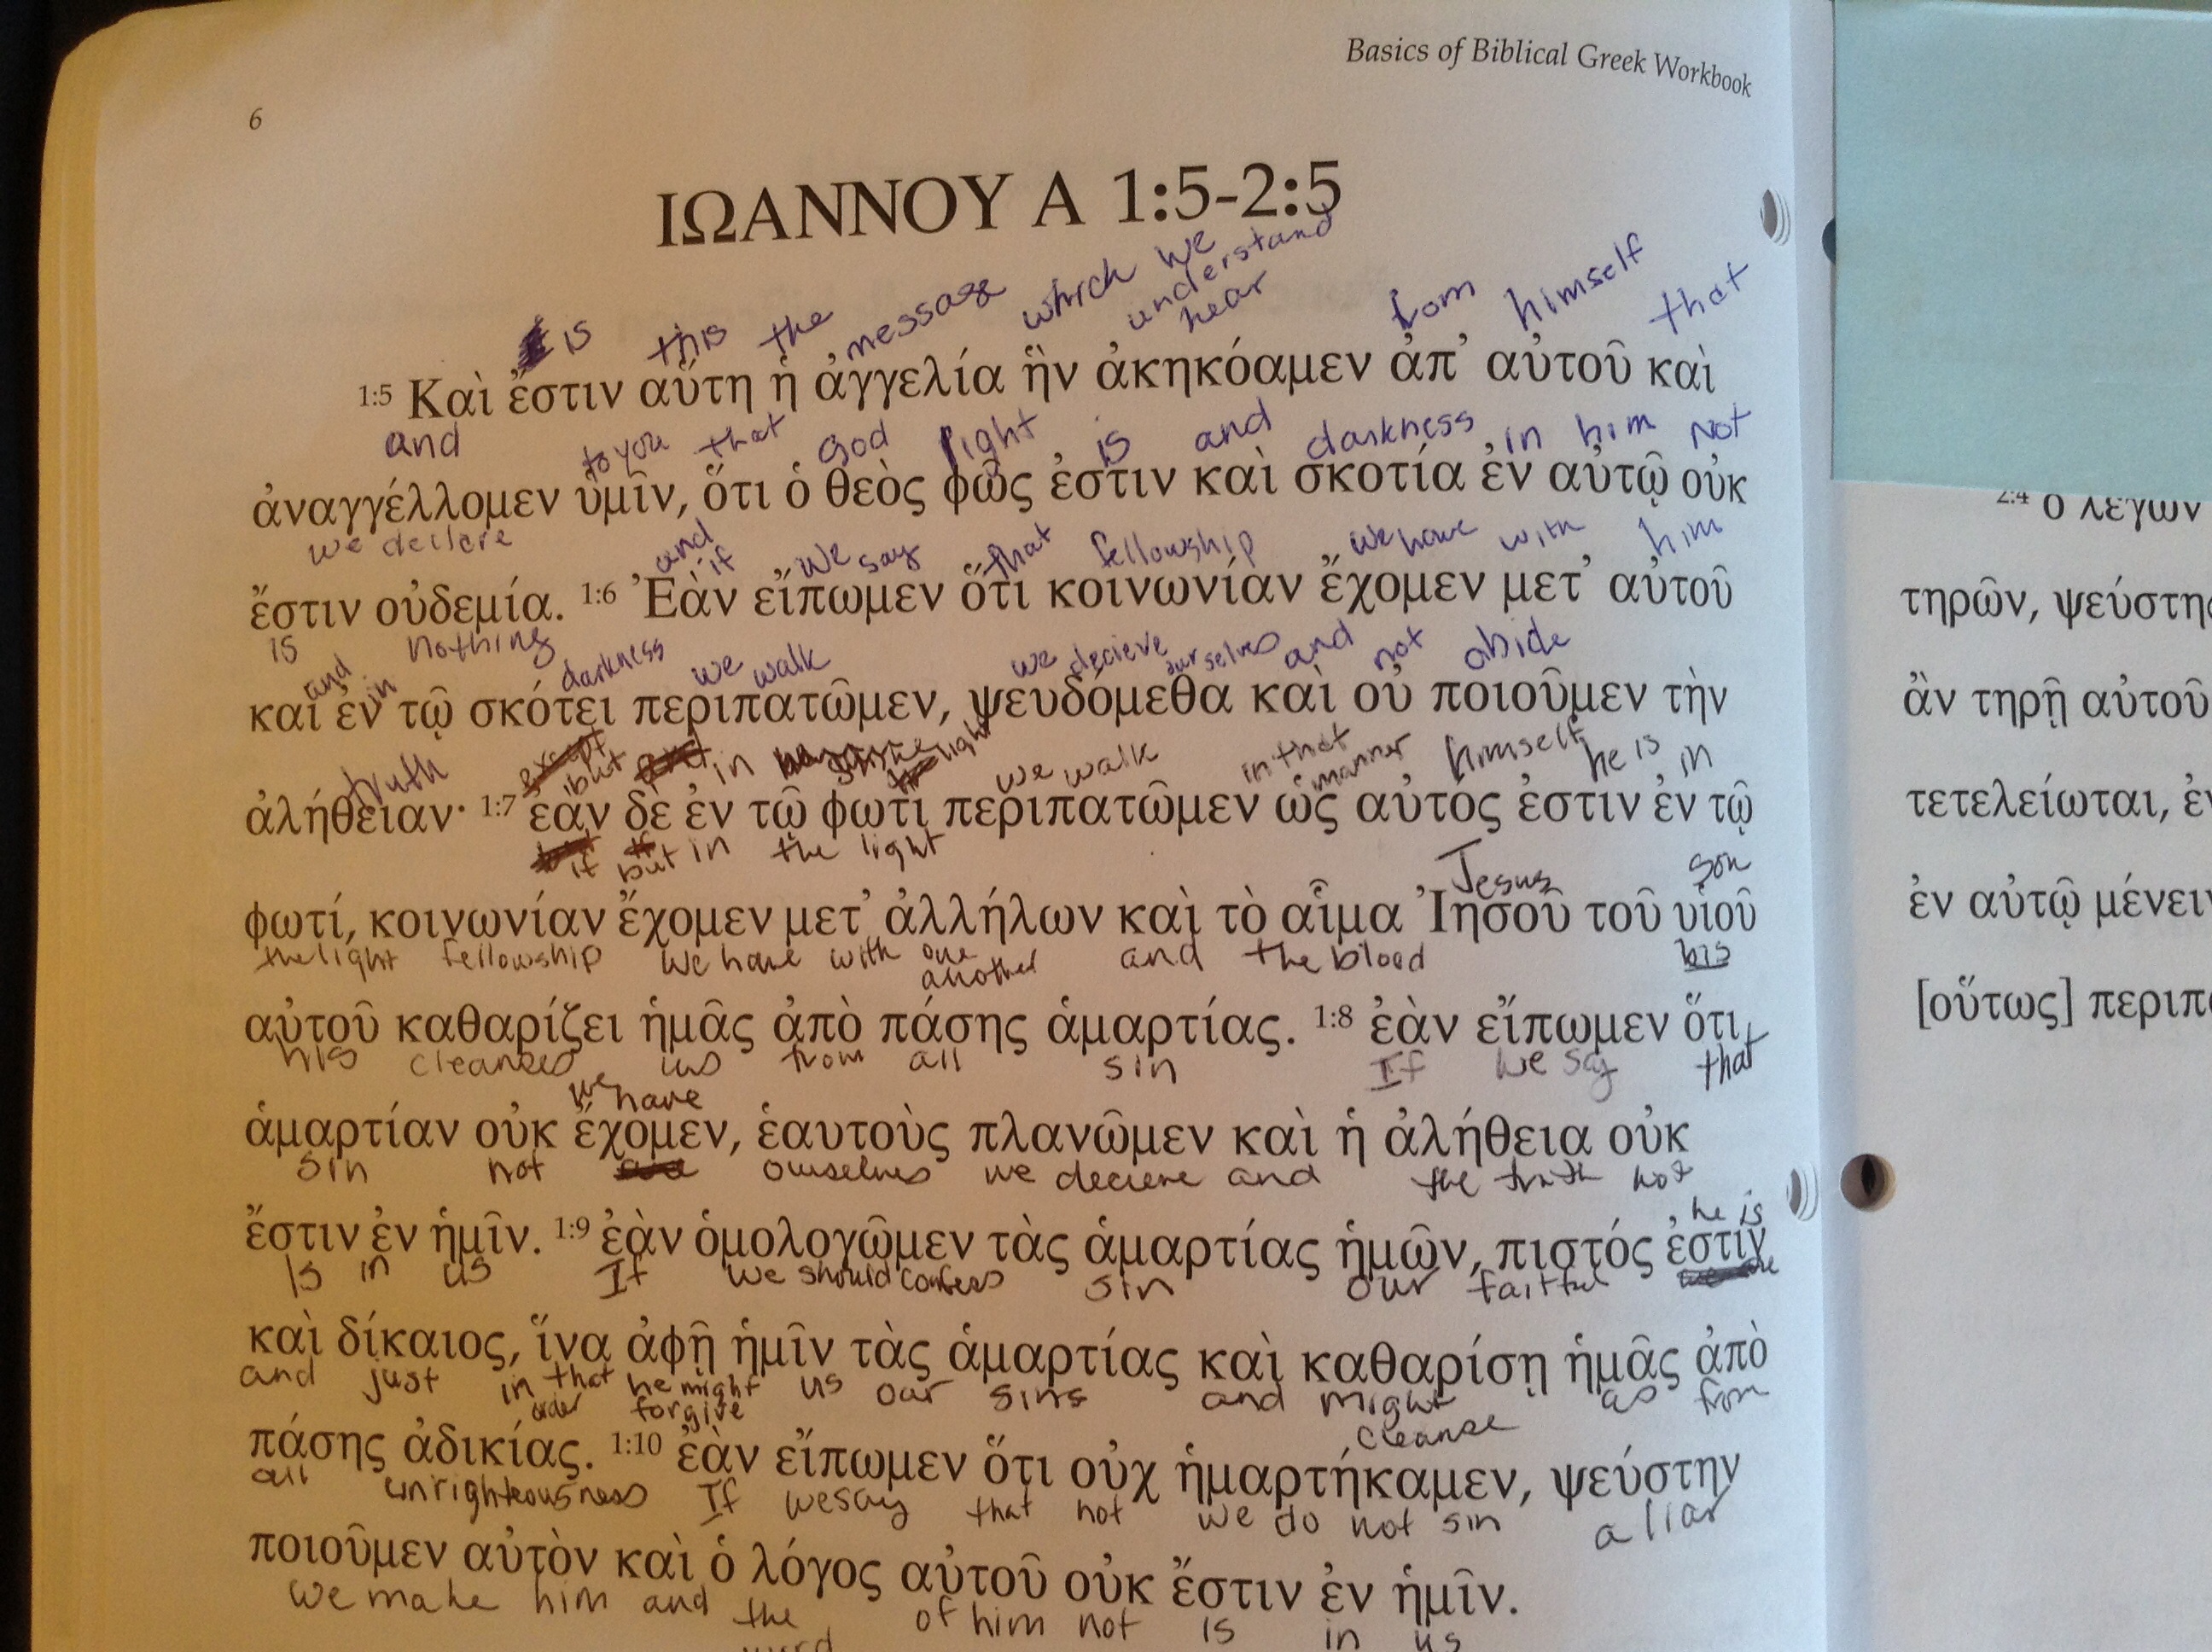 Basics of Biblical Greek Workbook
6
ΙΩΑΝΝΟΥ Α 1:5-2:5
which we understand
is this the message hear from himself that
1:5 Καὶ ἔστιν αὕτη ἡ ἀγγελία ἣν ἀκηκόαμεν ἀπ᾽ αὐτοῦ καὶ
and to you that God light is and darkness in him not
ἀναγγέλλομεν ὑμῖν, ὅτι ὁ θεὸς φῶς ἐστιν καὶ σκοτία ἐν αὐτῷ οὐκ
we declere and if we say that fellowship we have with him
ἔστιν οὐδεμία. 1:6 Ἐὰν εἴπωμεν ὅτι κοινωνίαν ἔχομεν μετ᾽ αὐτοῦ
is nothing
and in darkness we walk we decieve ourselves and not abide
καὶ ἐν τῷ σκότει περιπατῶμεν, ψευδόμεθα καὶ οὐ ποιοῦμεν τὴν
truth but in light we walk in that manner himself he is in
ἀλήθειαν· 1:7 ἐὰν δὲ ἐν τῷ φωτὶ περιπατῶμεν ὡς αὐτός ἐστιν ἐν τῷ
if but in the light Jesus son
φωτί, κοινωνίαν ἔχομεν μετ᾽ ἀλλήλων καὶ τὸ αἷμα Ἰησοῦ τοῦ υἱοῦ
the light fellowship we have with one another and the blood his
αὐτοῦ καθαρίζει ἡμᾶς ἀπὸ πάσης ἁμαρτίας. 1:8 ἐὰν εἴπωμεν ὅτι
his cleanses us from all sin If we say that
we have
ἁμαρτίαν οὐκ ἔχομεν, ἑαυτοὺς πλανῶμεν καὶ ἡ ἀλήθεια οὐκ
sin not ourselves we decieve and the truth not
he is
ἔστιν ἐν ἡμῖν. 1:9 ἐὰν ὁμολογῶμεν τὰς ἁμαρτίας ἡμῶν, πιστός ἐστιν
is in us If we should confess sin our faitful
καὶ δίκαιος, ἵνα ἀφῇ ἡμῖν τὰς ἁμαρτίας καὶ καθαρίσῃ ἡμᾶς ἀπὸ
and just in order that he might forgive us our sins and might cleanse us from
πάσης ἀδικίας. 1:10 ἐὰν εἴπωμεν ὅτι οὐχ ἡμαρτήκαμεν, ψεύστην
all unrighteousness If we say that not we do not sin a liar
ποιοῦμεν αὐτὸν καὶ ὁ λόγος αὐτοῦ οὐκ ἔστιν ἐν ἡμῖν.
we make him and the word of him not is in us
2:4 ὁ λέγων
τηρῶν, ψεύστης
ἂν τηρῇ αὐτοῦ
τετελείωται, ἐν
ἐν αὐτῷ μένειν
[οὕτως] περιπ